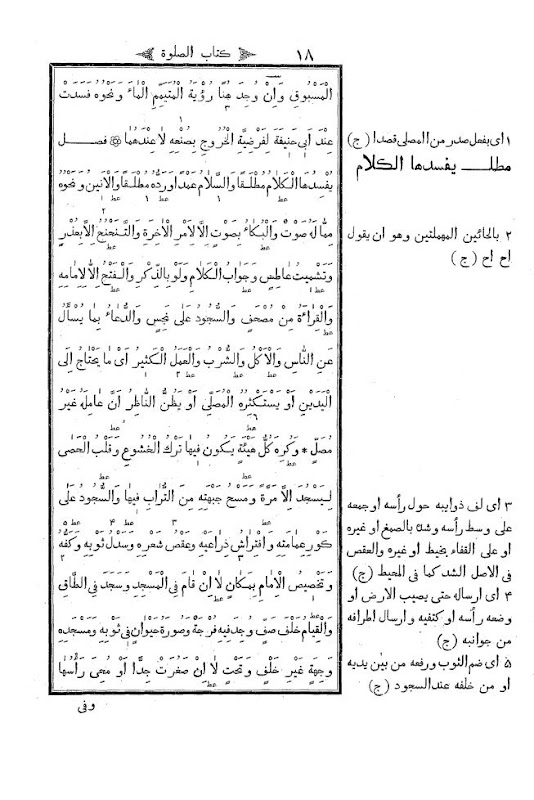 ١٨ كتاب الصلوة
الْمَسْبُوقِ وَاِنْ وُجِدَ هُنَا رُؤْيَةُ الْمُتَيَمِّمِ الْمَاءَ وَنَحْوُهُ فَسَدَتْ
عِنْدَ اَبِي حَنِيفَةَ لِفَرْضِيَّةِ الْخُرُوجِ بِصُنْعِهِ لَا عِنْدَهُمَا فصل
يُفْسِدُهَا الْكَلَامُ مُطْلَقًا وَالسَّلَامُ عَمْدًا وَرَدُّهُ مُطْلَقًا وَالْاَنِينُ وَنَحْوُهُ
مِمَّا لَهُ صَوْتٌ وَالْبُكَاءُ بِصَوْتٍ اِلَّا لِاَمْرِ الْاٰخِرَةِ وَالتَّنَحْنُحُ اِلَّا بِعُذْرٍ
وَتَشْمِيتُ عَاطِسٍ وَجَوَابُ الْكَلَامِ وَلَوْ بِالذِّكْرِ وَالْفَتْحُ اِلَّا لِاِمَامِهِ
وَالْقِرَاءَةُ مِنْ مُصْحَفٍ وَالسُّجُودُ عَلَى نَجِسٍ وَالدُّعَاءُ بِمَا يُسْأَلُ
عَنِ النَّاسِ وَالْاَكْلُ وَالشُّرْبُ وَالْعَمَلُ الْكَثِيرُ اَىْ مَا يَحْتَاجُ اِلَى
الْيَدَيْنِ اَوْ يَسْتَكْثِرُهُ الْمُصَلِّى اَوْ يَظُنُّ النَّاظِرُ اَنَّ عَامِلَهُ غَيْرُ
مُصَلٍّ * وَكُرِهَ كُلُّ هَيْئَةٍ يَكُونُ فِيهَا تَرْكُ الْخُشُوعِ وَقَلْبُ الْحَصَى
لِيَسْجُدَ اِلَّا مَرَّةً وَمَسْحُ جَبْهَتِهِ مِنَ التُّرَابِ فِيهَا وَالسُّجُودُ عَلَى
كَوْرِ عِمَامَتِهِ وَافْتِرَاشُ ذِرَاعَيْهِ وَعَقْصُ شَعْرِهِ وَسَدْلُ ثَوْبِهِ وَكَفُّهُ
وَتَخْصِيصُ الْاِمَامِ بِمَكَانٍ لَا اِنْ قَامَ فِى الْمَسْجِدِ وَسَجَدَ فِى الطَّاقِ
وَالْقِيَامُ خَلْفَ صَفٍّ وُجِدَ فِيهِ فُرْجَةٌ وَصُورَةُ حَيْوَانٍ فِى ثَوْبِهِ وَمَسْجَدِهِ
وَجِهَةٍ غَيْرِ خَلْفٍ وَتَحْتٍ لَا اِنْ صَغُرَتْ جِدًّا اَوْ مُحِىَ رَأْسُهَا
وفى
١ اى بفعل صدر من المصلى قصدا (ج)
مطلب يفسدها الكلام
٢ بالحائين المهملتين وهو ان يقول
اح اح (ج)
٣ اى لف ذوابيه حول رأسه او جمعه
على وسط رأسه وشده بالصمغ او غيره
او على القفاء بخيط او غيره والعقص
فى الاصل الشد كما فى المحيط (ج)
٤ اى ارساله حتى يصيب الارض او
وضعه رأسه او كتفيه وارسال اطرافه
من جوانبه (ج)
٥ اى ضم الثوب ورفعه من بين يديه
او من خلفه عند السجود (ج)